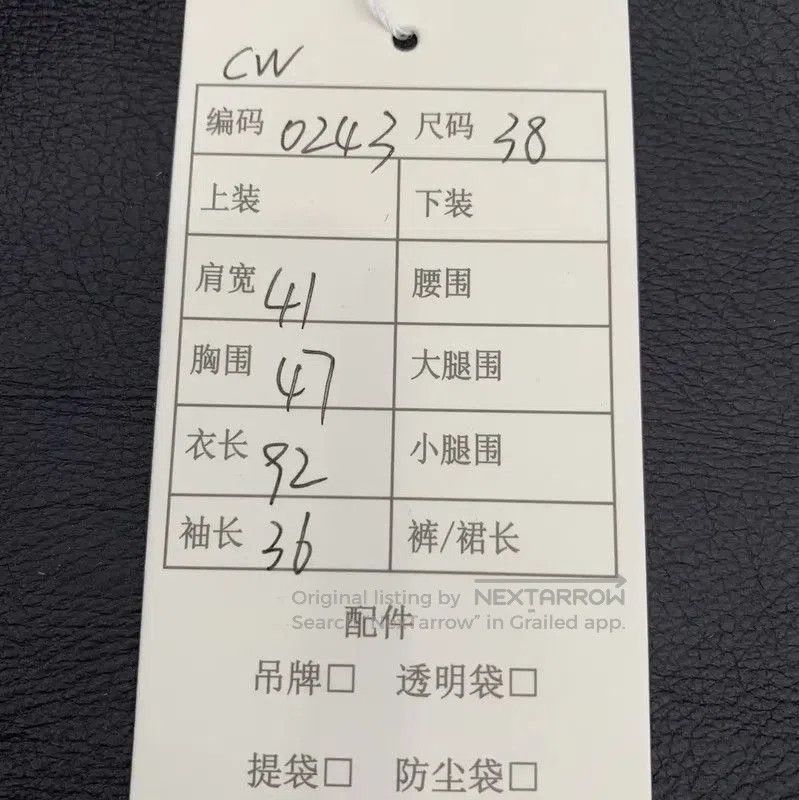 CW
编码 0243 尺码 38
上装 下装
肩宽 41 腰围
胸围 47 大腿围
衣长 92 小腿围
袖长 36 裤/裙长
Original listing by NEXTARROW
Search "NextArrow" in Grailed app.
配件
吊牌□ 透明袋□
提袋□ 防尘袋□